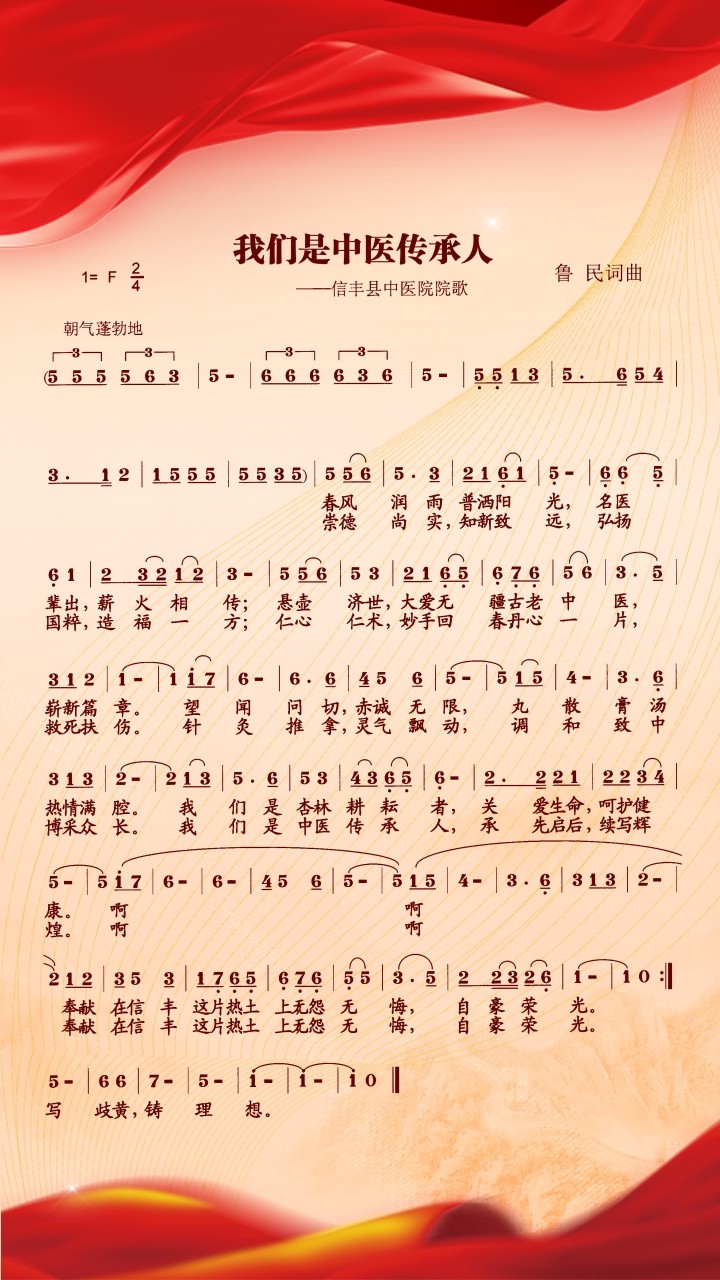 我们是中医传承人
1= F 2/4
——信丰县中医院院歌
鲁 民词曲
朝气蓬勃地
3 3 3 3
(5 5 5 5 6 3 | 5 - | 6 6 6 6 3 6 | 5 - | 5 5 1 3 | 5 . 6 5 4 |
3 . 1 2 | 1 5 5 5 | 5 5 3 5) | 5 5 6 | 5 . 3 | 2 1 6 1 | 5 - | 6 6 5 |
春风 润 雨 普洒阳 光, 名医
崇德 尚 实, 知新致 远, 弘扬
6 1 | 2 3 2 1 2 | 3 - | 5 5 6 | 5 3 | 2 1 6 5 | 6 7 6 | 5 6 | 3 . 5 |
辈出, 薪 火 相 传; 悬壶 济世, 大爱无 疆古老 中 医,
国粹, 造 福 一 方; 仁心 仁术, 妙手回 春丹心 一 片,
3 1 2 | 1 - | 1 i 7 | 6 - | 6 . 6 | 4 5 6 | 5 - | 5 1 5 | 4 - | 3 . 6 |
崭新篇 章。 望 闻 问 切, 赤诚 无 限, 丸 散 膏 汤
救死扶 伤。 针 灸 推 拿, 灵气 飘 动, 调 和 致 中
3 1 3 | 2 - | 2 1 3 | 5 . 6 | 5 3 | 4 3 6 5 | 6 - | 2 . 2 2 1 | 2 2 3 4 |
热情满 腔。 我 们 是 杏林 耕 耘 者, 关 爱生命, 呵护健
博采众 长。 我 们 是 中医 传 承 人, 承 先启后, 续写辉
5 - | 5 i 7 | 6 - | 6 - | 4 5 6 | 5 - | 5 1 5 | 4 - | 3 . 6 | 3 1 3 | 2 - |
康。 啊 啊
煌。 啊 啊
2 1 2 | 3 5 3 | 1 7 6 5 | 6 7 6 | 5 5 | 3 . 5 | 2 2 3 2 6 | 1 - | 1 0 :|
奉献 在信 丰 这片热土 上无怨 无 悔, 自 豪 荣 光。
奉献 在信 丰 这片热土 上无怨 无 悔, 自 豪 荣 光。
5 - | 6 6 | 7 - | 5 - | i - | i - | i 0 ‖
写 歧黄, 铸 理 想。